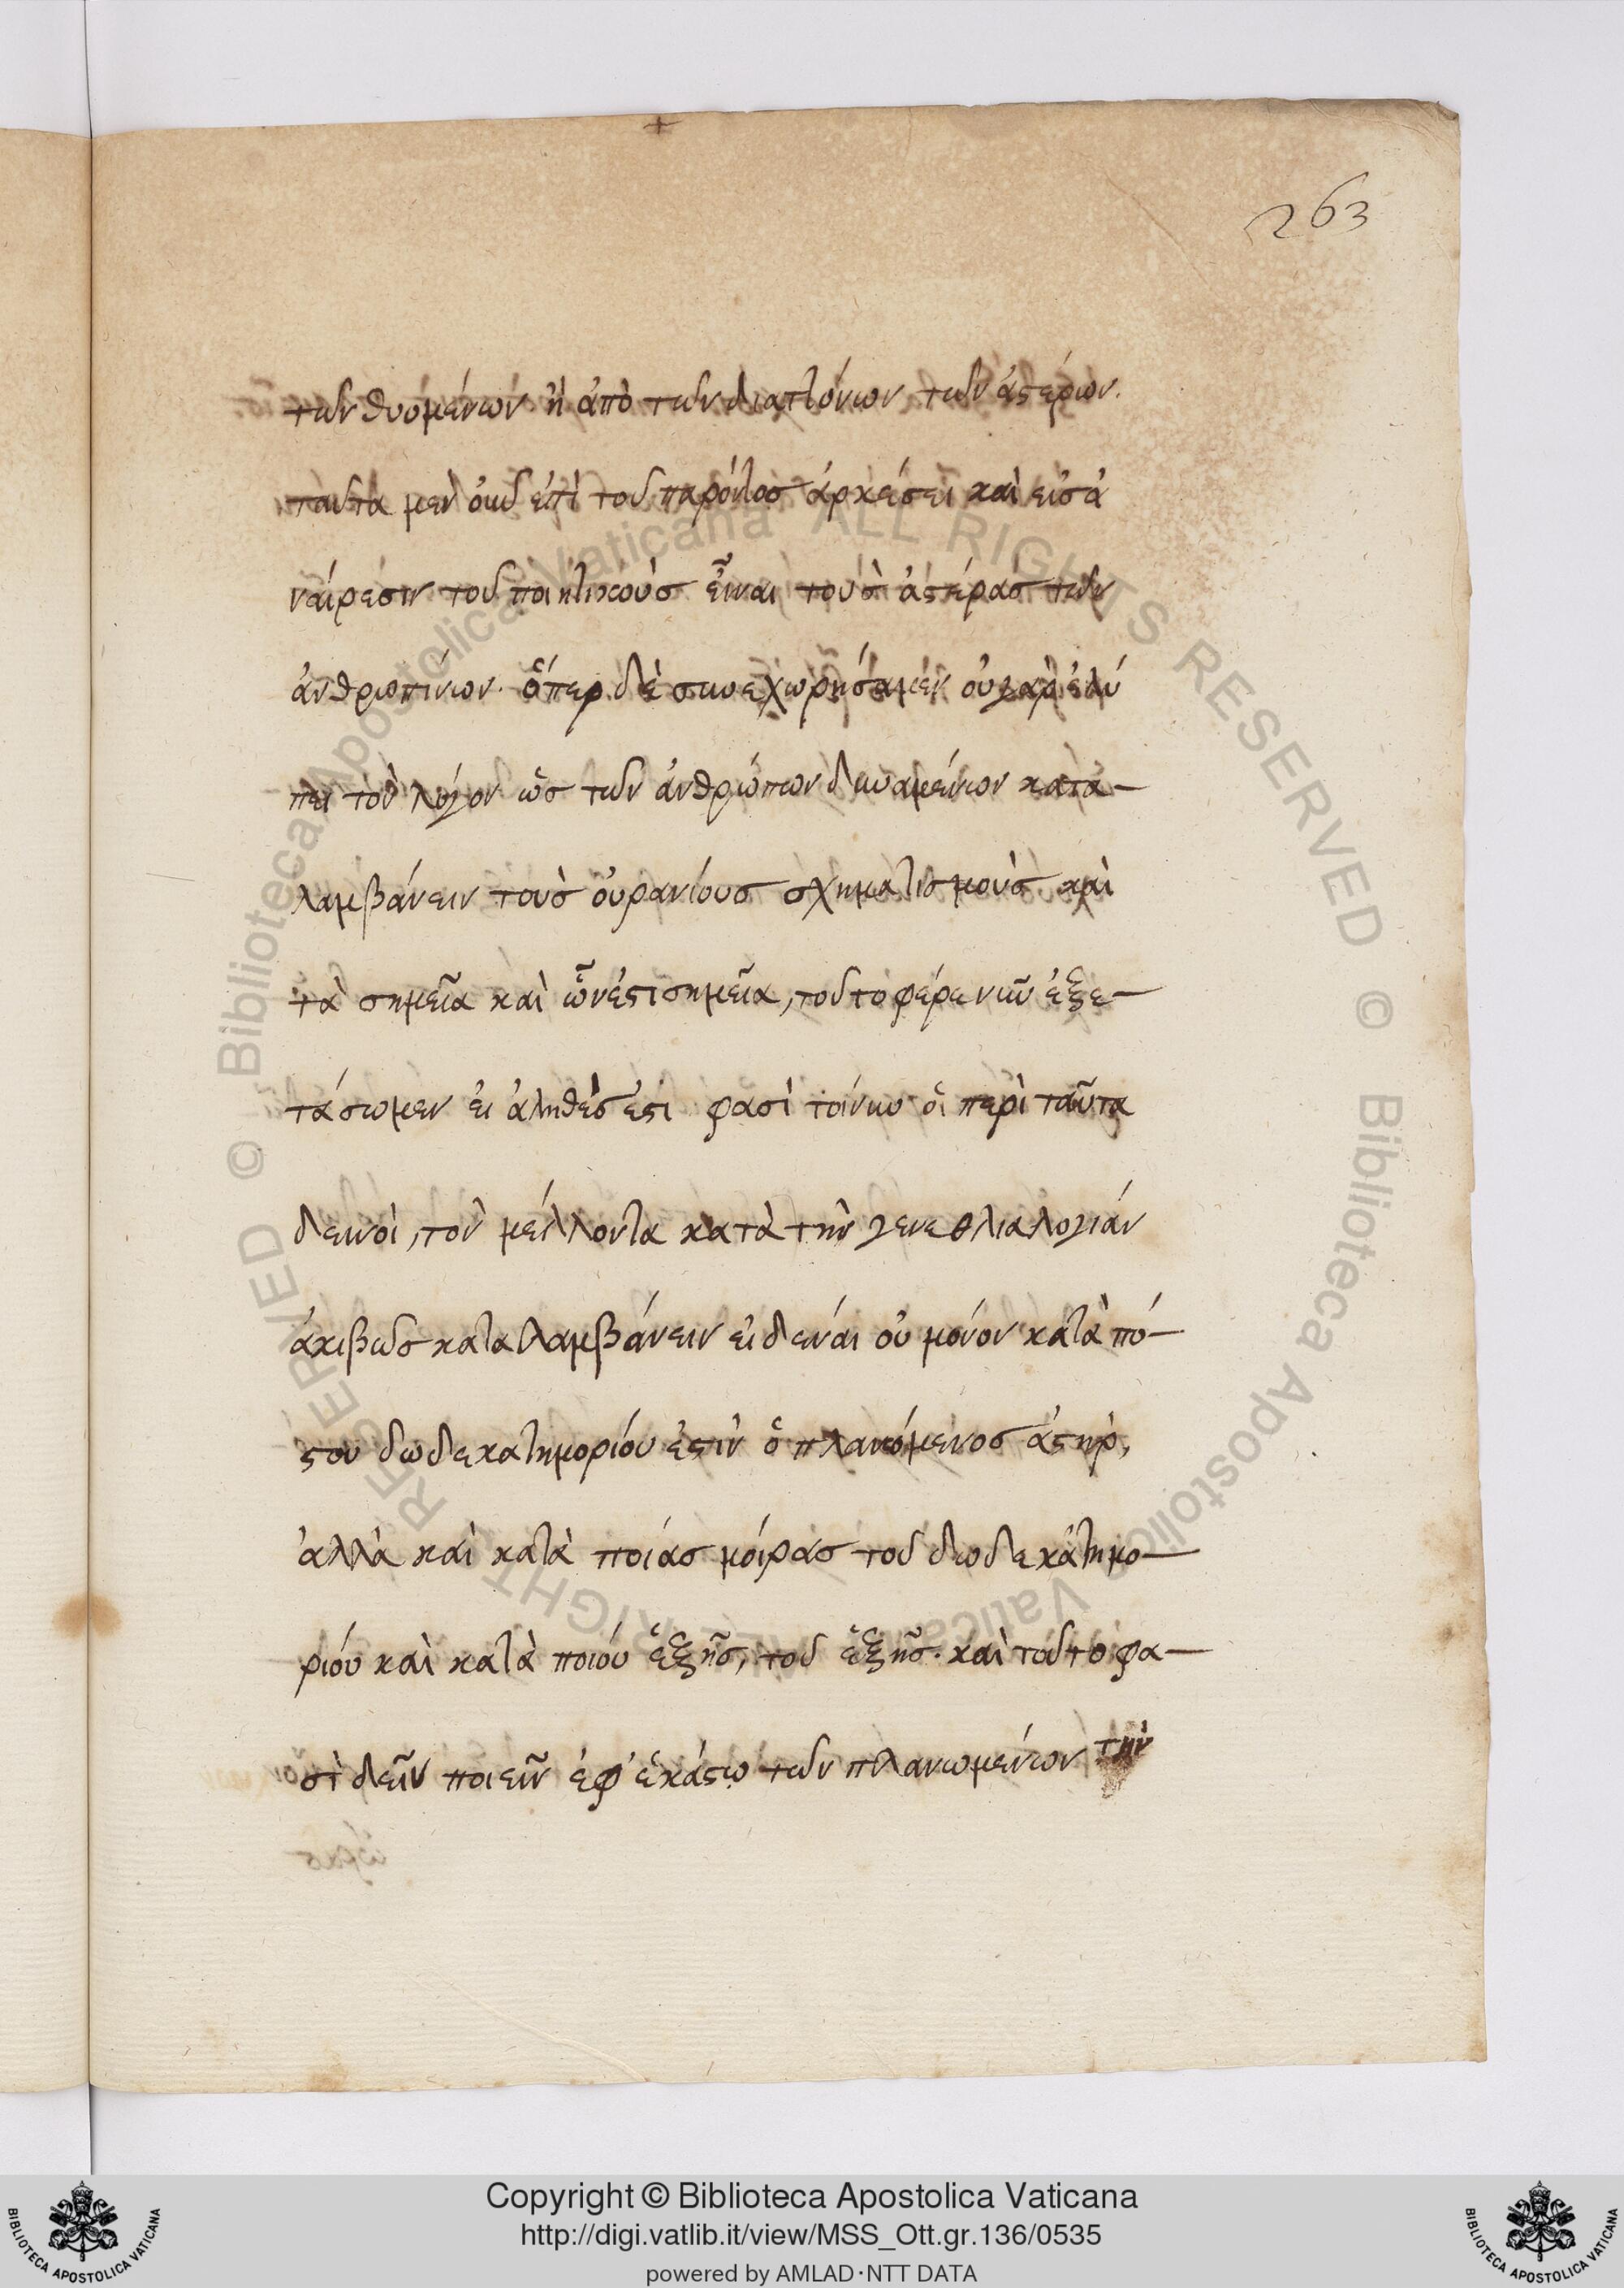 263
τῶν θυομένων ἢ ἀπὸ τῶν διαττόντων τῶν ἀστέρων.
ταῦτα μὲν οὖν ἐπὶ τοῦ παρόντος ἀρκέσει καὶ εἰς ἀ
ναίρεσιν τοῦ ποιητικοὺς εἶναι τοὺς ἀστέρας τῶν
ἀνθρωπίνων. ὅπερ δὲ συνεχωρήσαμεν οὐ γὰρ ἐλύ
πει τὸν λόγον ὡς τῶν ἀνθρώπων δυναμένων κατα-
λαμβάνειν τοὺς οὐρανίους σχηματισμοὺς καὶ
τὰ σημεῖα καὶ ὧν ἐστι σημεῖα, τοῦτο φέρε νῦν ἐξε-
τάσωμεν εἰ ἀληθές ἐστι φασὶ τοίνυν οἱ περὶ ταῦτα
δεινοὶ, τὸν μέλλοντα κατὰ τὴν γενεθλιαλογίαν
ἀκιβῶς καταλαμβάνειν εἰδέναι οὐ μόνον κατὰ πό-
στου δωδεκατημορίου ἐστὶν ὁ πλανόμενος ἀστὴρ,
ἀλλὰ καὶ κατὰ ποίας μοίρας τοῦ δωδεκατημο-
ρίου καὶ κατὰ ποίου ἑξῆς, τοῦ ἑξῆς. καὶ τοῦτο φα-
σὶ δεῖν ποιεῖν ἐφ' ἑκάστῳ τῶν πλανωμένων τὴν
© Biblioteca Apostolica Vaticana ALL RIGHTS RESERVED © Biblioteca Apostolica Vaticana ALL RIGHTS RESERVED
Copyright © Biblioteca Apostolica Vaticana
http://digi.vatlib.it/view/MSS_Ott.gr.136/0535
powered by AMLAD·NTT DATA
BIBLIOTECA APOSTOLICA VATICANA
BIBLIOTECA APOSTOLICA VATICANA